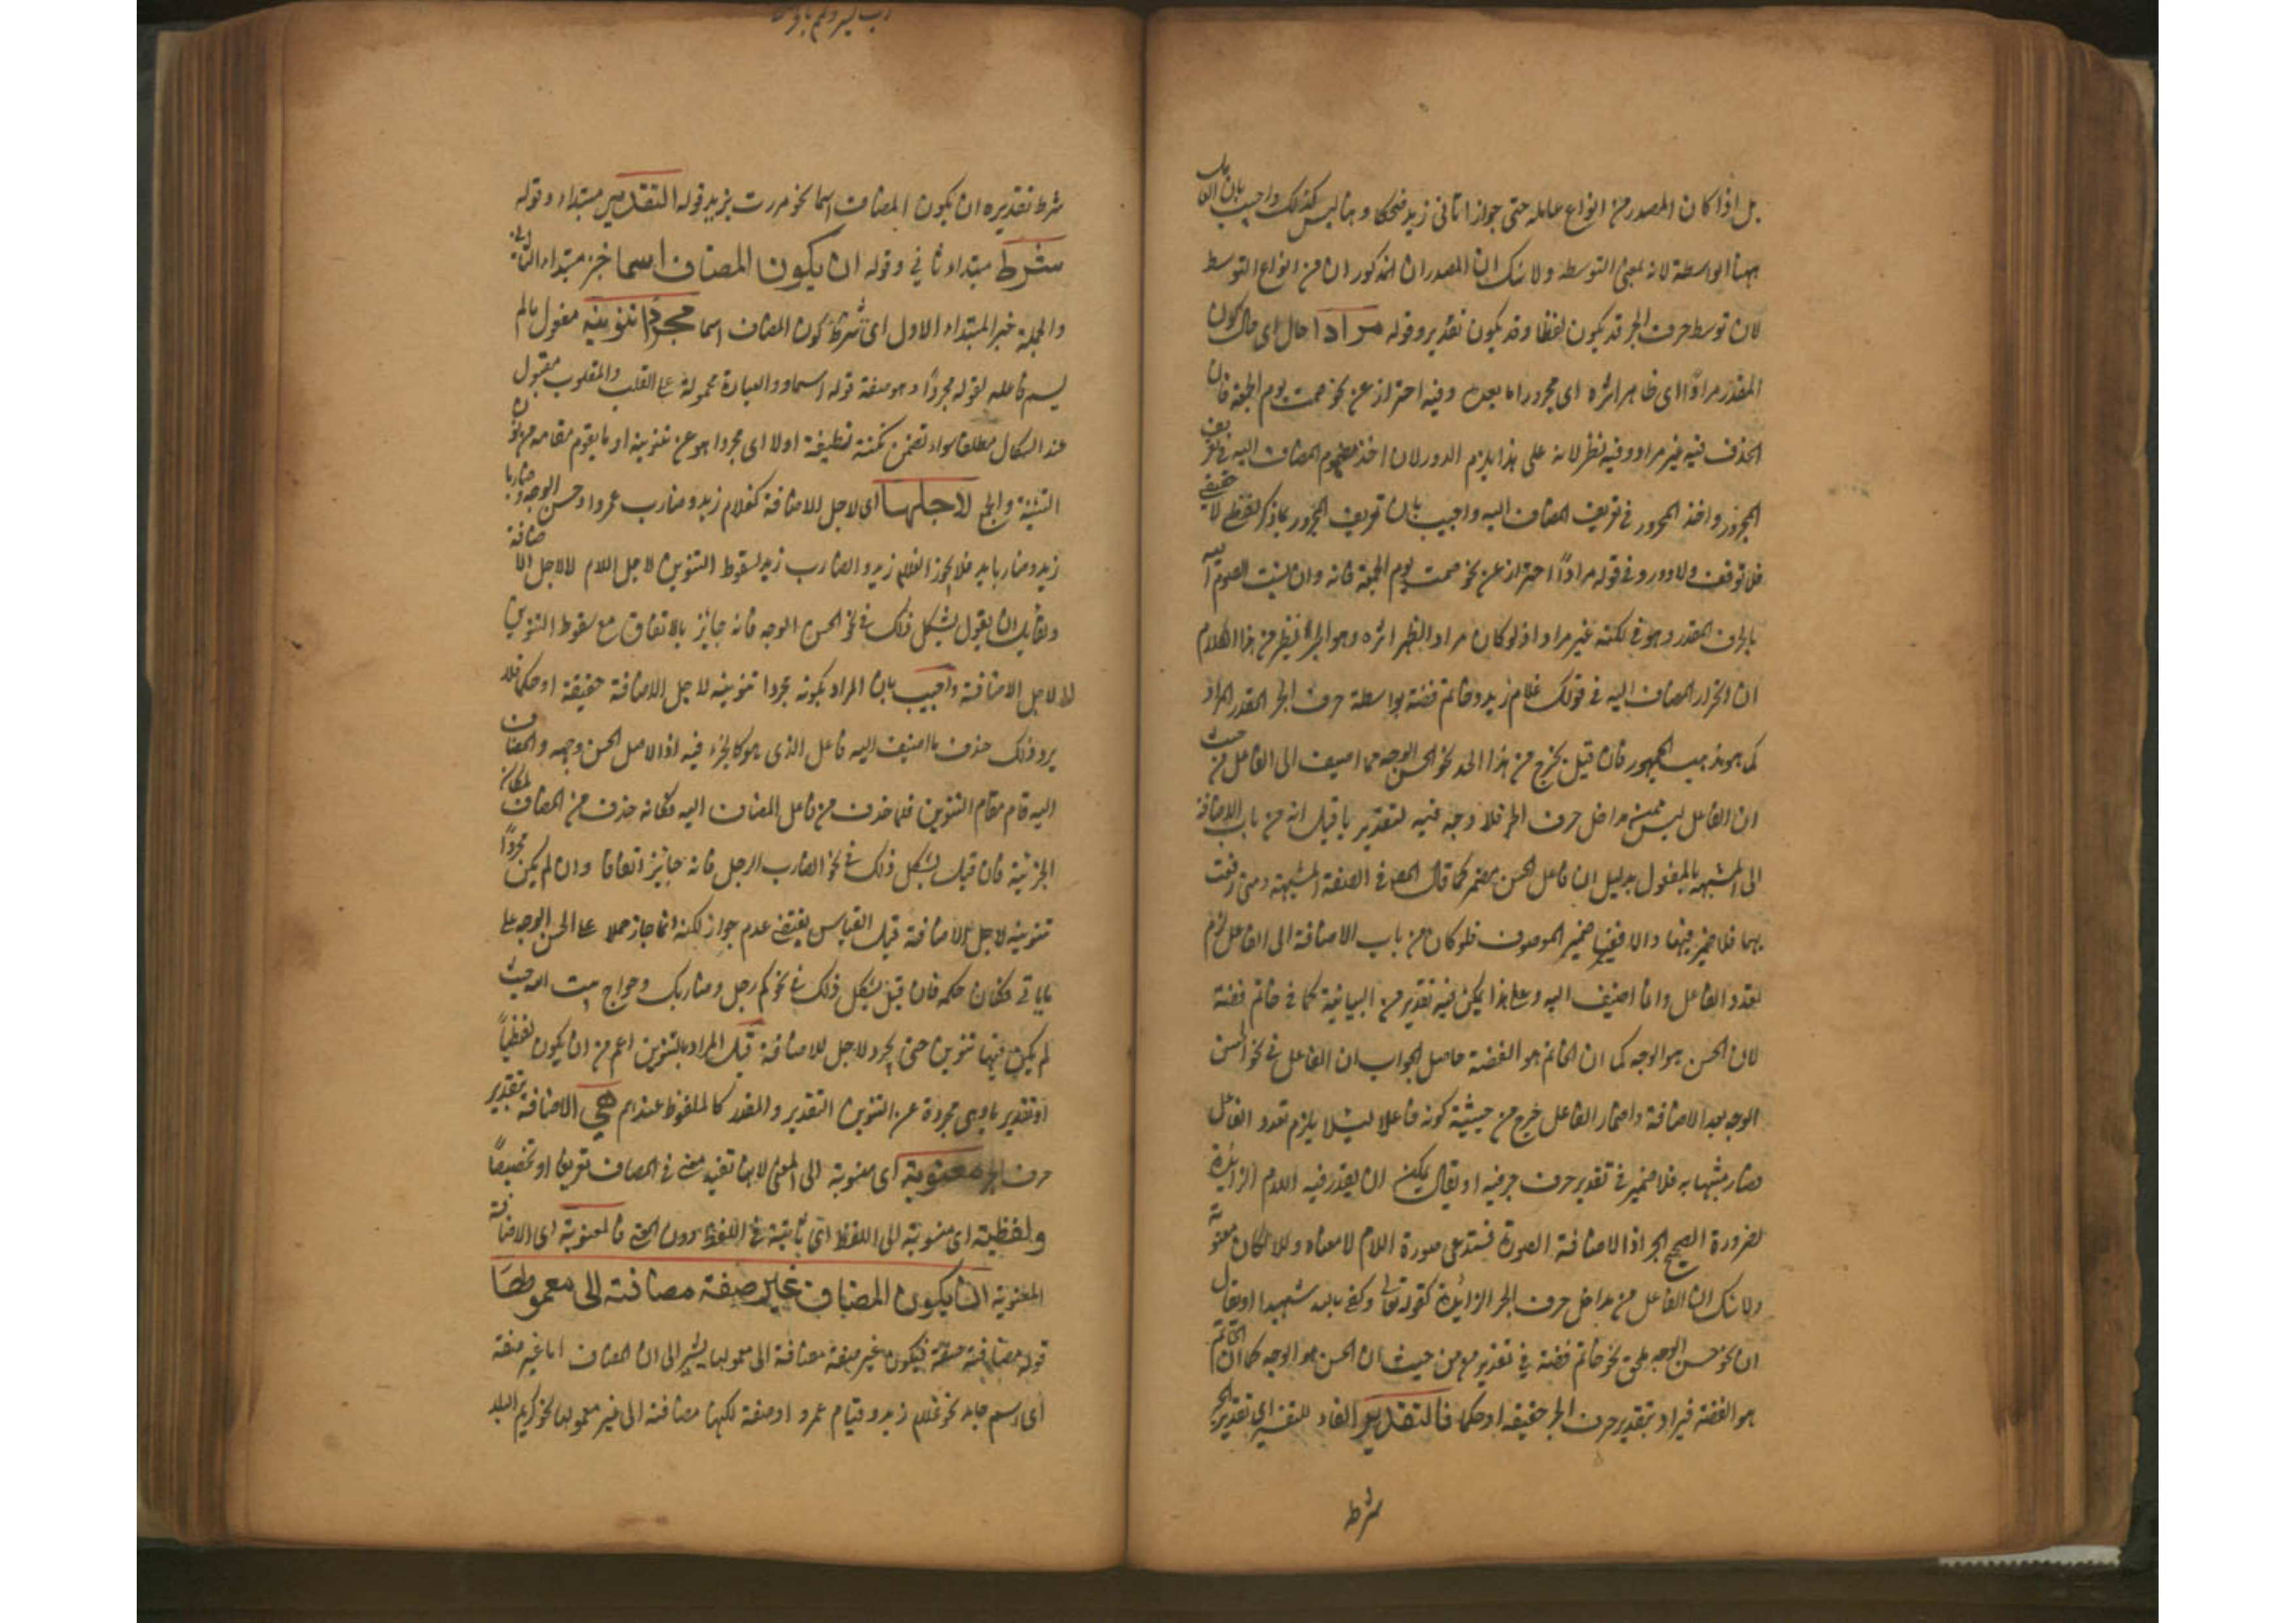 بل اذا كان المصدر من انواع عامله حتى جواز اتانى زيد ضحكا وهنا ليس كذلك واجيب بان القابل
ههنا الواسطة لانه بمعنى التوسط ولا شك ان المصدران المذكوران من انواع التوسط
لان توسط حرف الجر قد يكون لفظا وقد يكون تقدير وقوله مرادا حال اى حال كون
المقدر مرادًا اى ظاهر اثره اى مجرورا ما بعده وفيه احتراز عن نحو صمت يوم الجمعة فان
الحذف فيه غير مراد وفيه نظر لانه على هذا يلزم الدور لان اخذ مفهوم المضاف اليه فى تعريف
المجرور واخذ المجرور فى تعريف المضاف اليه واجيب بان تعريف المجرور بما ذكر لفظى لا حقيقى
فلا توقف ولا دور وفى قوله مرادًا احتراز عن نحو صمت يوم الجمعة فانه وان نسبت الصوم اليه
بالحرف المقدر وهو فى لكنه غير مراد اذ لو كان مراد الظهر اثره وهو الجر فيظهر من هذا الكلام
ان انجرار المضاف اليه فى قولك غلام زيد وخاتم فضة بواسطة حرف الجر المقدر المراد
كما هو مذهب الجمهور فان قيل يخرج من هذا الحد نحو الحسن الوجه مما اضيف الى الفاعل من حيث
ان الفاعل ليس من مداخل حرف الجر فلا وجه فيه لتقدير ما قيل انه من باب الاضافة
الى المشبهة بالمفعول بدليل ان فاعل الحسن مضمر كما قال المص فى الصفة المشبهة ومتى رفعت
بها فلا ضمير فيها والا ففيها ضمير الموصوف فلو كان من باب الاضافة الى الفاعل لزم
تعدد الفاعل وانما اضيف اليه وعلى هذا يمكن فيه تقدير من البيانية كما فى خاتم فضة
لان الحسن هو الوجه كما ان الخاتم هو الفضة حاصل الجواب ان الفاعل فى نحو الحسن
الوجه بعد الاضافة واضمار الفاعل خرج من حيثية كونه فاعلا لئلا يلزم تعدد الفاعل
فصار مشبها به فلا ضمير فى تقدير حرف جر فيه او يقال يمكن ان يقدر فيه اللام الزائدة
لضرورة الصحيح الجر اذ الاضافة الصورة فستدعى صورة اللام لا معناه والا لكان معنوية
ولا شك ان الفاعل من مداخل حرف الجر الزائدة كقوله تعالى وكفى بالله شهيدا او يقال
ان نحو حسن الوجه ملحق نحو خاتم فضة فى تقدير من من حيث ان الحسن هو الوجه كما ان الخاتم
هو الفضة فيراد بتقدير حرف الجر حقيقة او حكما فالتقدير الفاء للتفسير اى تقدير الجر
شرط
شرط تقديره ان يكون المضاف اسما نحو مررت بزيد قوله التقدير مبتداء وقوله
شرط مبتداء ثانى وقوله ان يكون المضاف اسما خبر مبتداء الثانى
والجملة خبر المبتداء الاول اى شرطه كون المضاف اسما مجردًا تنوينه مفعول ما لم
يسم فاعله لقوله مجردًا وهو صفة قوله اسما والعبارة محمولة على القلب والمقلوب مقبول
عند السكاكى مطلقا سواء تضمن نكتة لطيفة اولا اى مجردا هو عن تنوينه او ما يقوم مقامه من نون
التثنية والجمع لاجلها اى لاجل الاضافة كغلام زيد وضارب عمرو وحسن الوجه وضاربا
زيد وضاربا بد فلا يجوز الغلام زيد والضارب زيد لسقوط التنوين لاجل اللام لا لاجل الاضافة
ولقايل ان يقول يشكل ذلك فى نحو الحسن الوجه فانه جايز بالاتفاق مع سقوط التنوين
لا لاجل الاضافة واجيب بان المراد بكونه مجردا تنوينه لاجل الاضافة حقيقة او حكما فلا
يرد ذلك حذف ما اضيف اليه فاعل الذى هو كالجزء فيه اذ الاصل الحسن وجهه والمضاف
اليه قام مقام التنوين فلما حذف من فاعل المضاف اليه فكانه حذف من المضاف لمكان
الجزئية فان قيل يشكل ذلك فى نحو الضارب الرجل فانه جايز اتفاقا وان لم يكن مجردًا
تنوينه لاجل الاضافة قيل القياس يقتضى عدم جواز لكنه انما جاز حملا على الحسن الوجه على
ما ياتى فكان حكمه فان قيل يشكل ذلك فى نحو كم رجل وضاربك وحواج بيت الله حيث
لم يكن فيها تنوين حتى يجرد لاجل الاضافة قيل المراد بالتنوين اعم من ان يكون لفظيًا
او تقديريا وهى مجردة عن التنوين التقدير والمقدر كالملفوظ عندهم هى الاضافة بتقدير
حرف الجر معنوية اى منسوبة الى المعنى لانها تفيد معنى فى المضاف تعريفا او تخصيصًا
ولفظية اى منسوبة الى اللفظ اى ثابتة فى اللفظ دون المعنى فالمعنوية اى الاضافة
المعنوية ان يكون المضاف غير صفة مضافة الى معمولها
قوله مضافة صفة فيكون غير صفة مضافة الى معمولها يشير الى ان المضاف اما غير صفة
اى اسم جامد نحو غلام زيد وقيام عمرو او صفة لكنها مضافة الى غير معمولها نحو كريم البلد